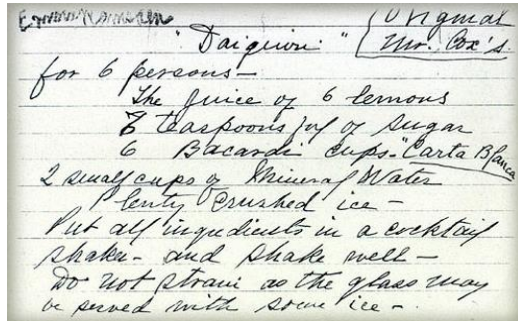 Original
"Daiquiri" Mr. Cox's
for 6 persons—
The juice of 6 lemons
teaspoonsful of sugar
6 Bacardi cups "Carta Blanca
2 small cups of Mineral Water
Plenty crushed ice—
Put all ingredients in a cocktail
shaker- and shake well—
Do not strain as the glass may
be served with some ice—